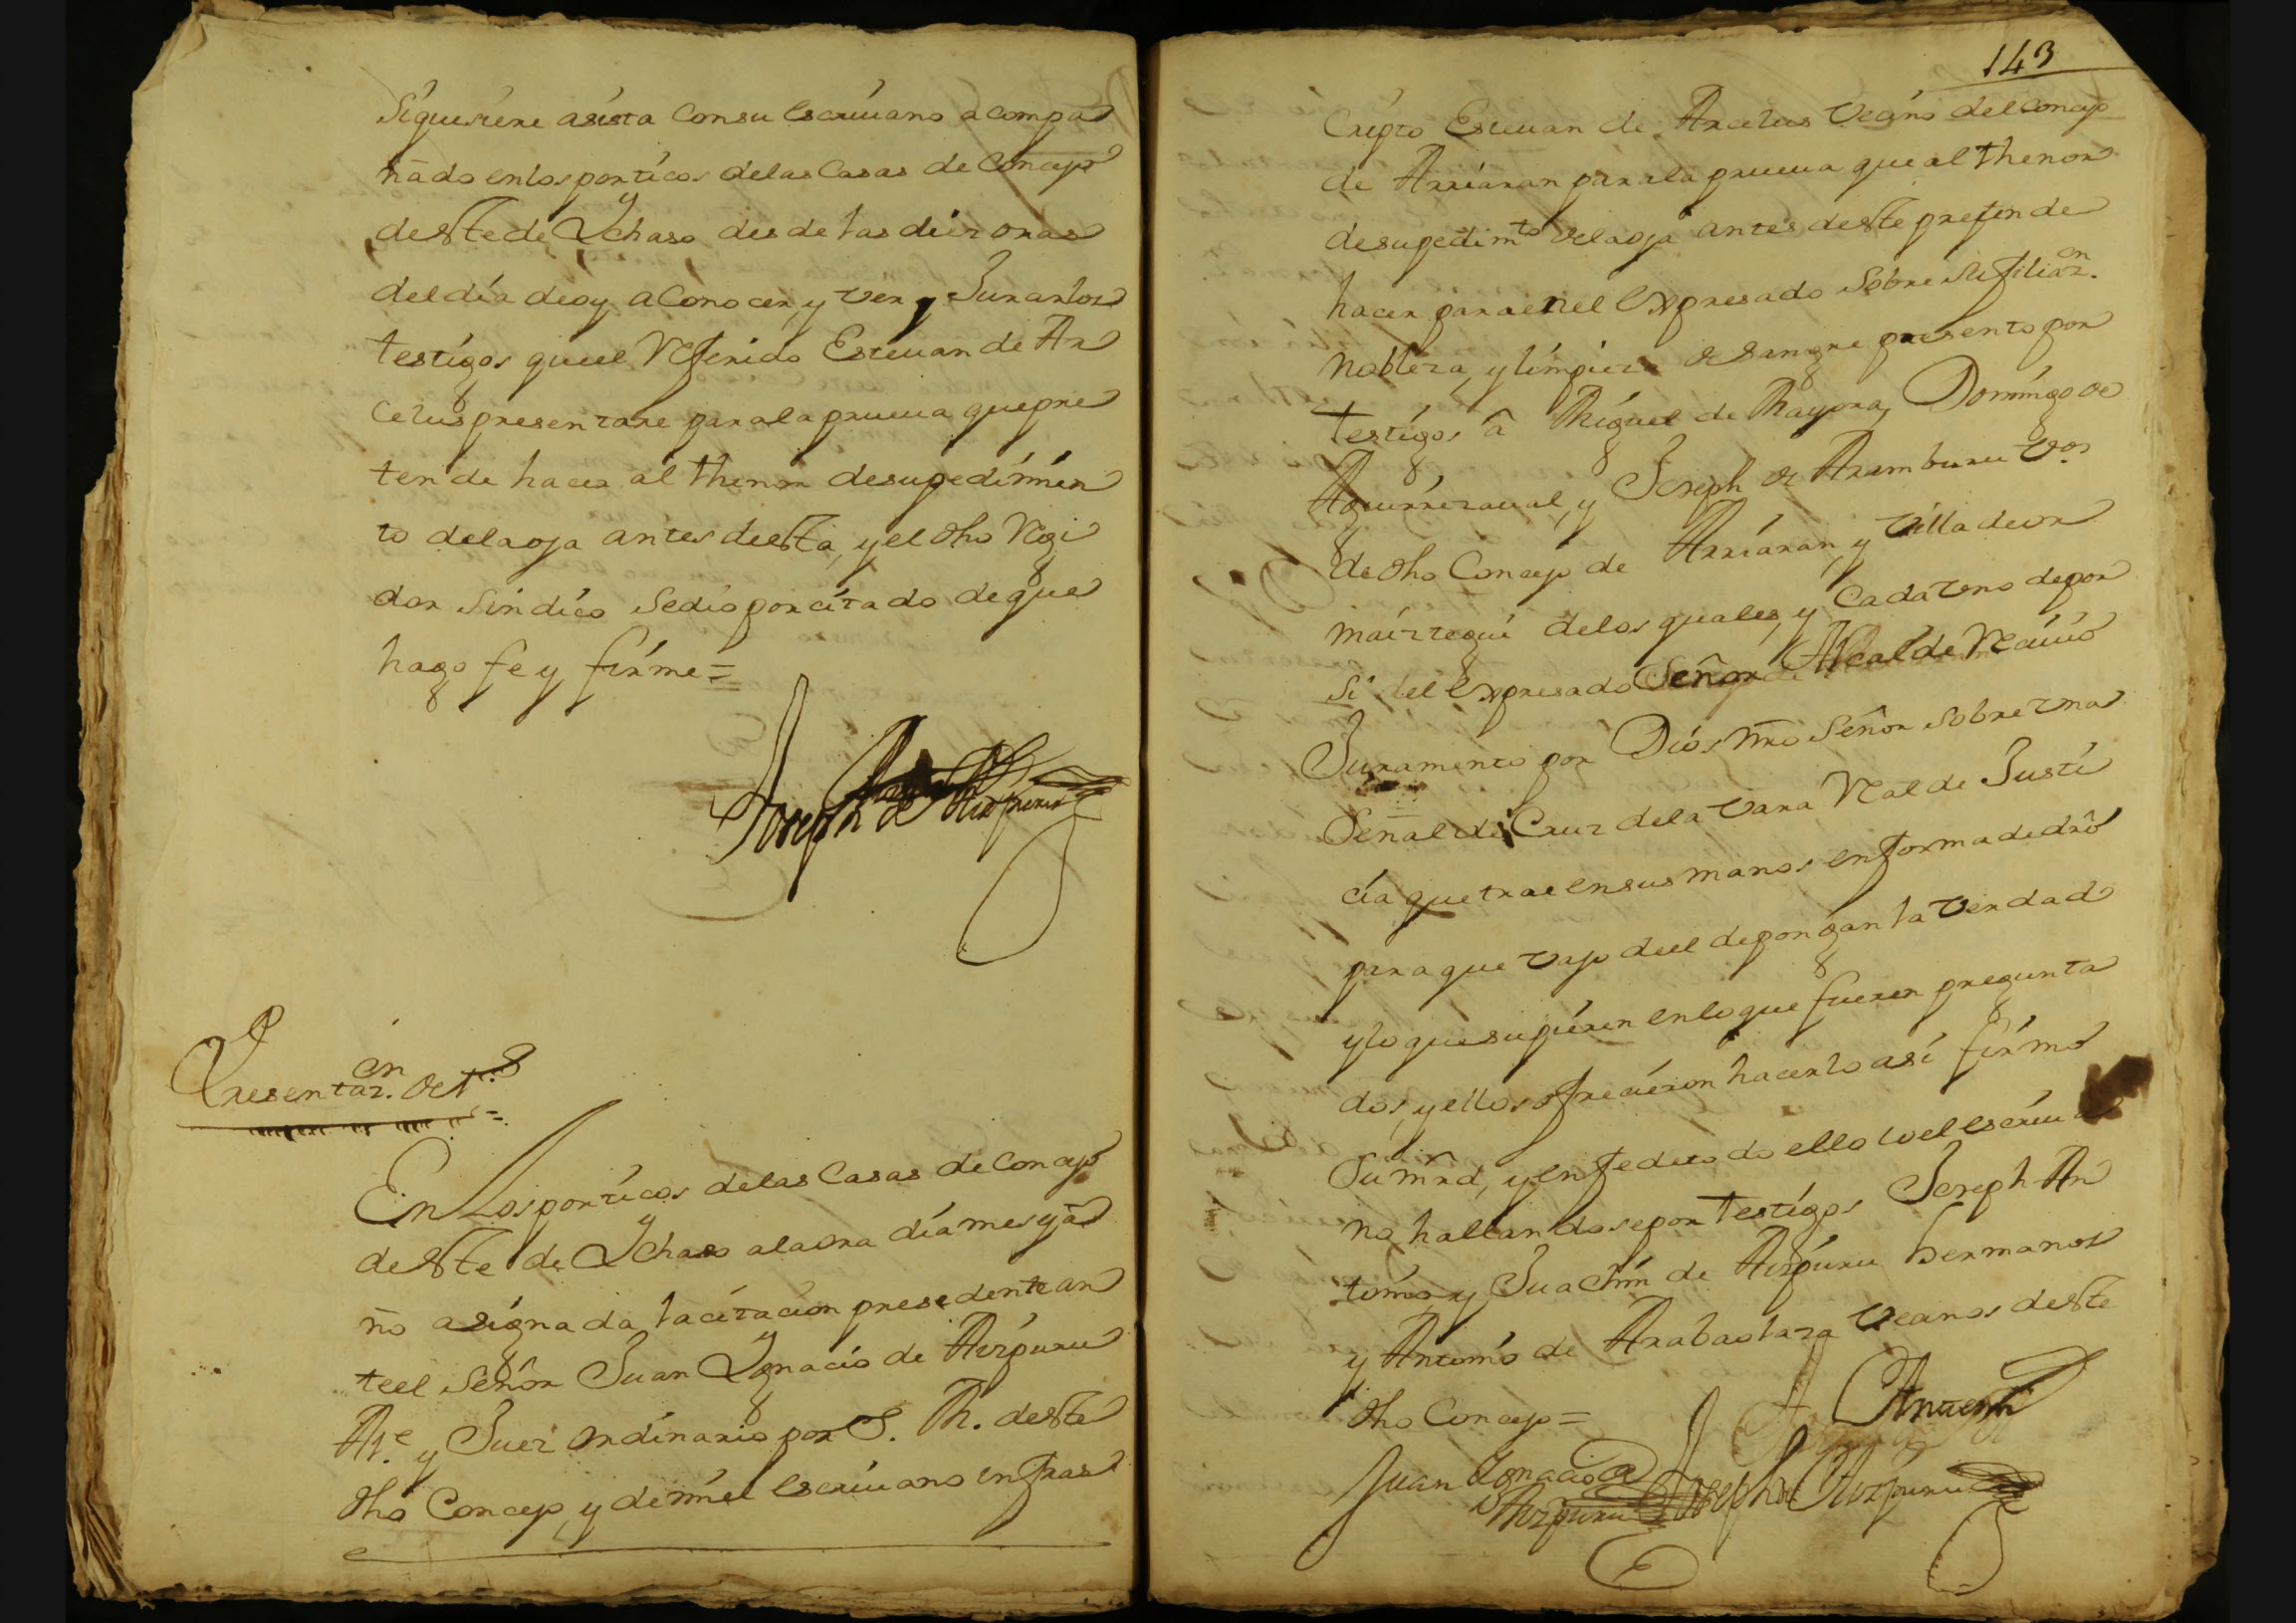 siquisiere asista con su escriuano acompa
ñado en los porticos de las Casas de Concejo
deste de Ychaso desde las diez oras
del dia de oy a Conocer, y ver y Jurar los
testigos que el Referido Esteuan de Ar
celus presentare para la prueua que pre
tende hacer al thenor de su pedimien
to de la oja antes desta, y el dho Regi
dor Sindico se dio por citado de que
hago fe y firme =
Joseph de Aizpuru
Presentaz.on de t.os =
En Los porticos de las Casas de Concejo
deste de Ychaso a la ora dia mes y a
ño asignada la citacion presedente an
te el Señor Juan Ygnacio de Aizpuru
Al.e y Juez ordinario por S. M. deste
dho Concejo, y de mi el escriuano infras
143
Cripto Esteuan de Arcelus Vecino del concejo
de Arriaran para la prueua que al thenor
de su pedim.to de la oja antes deste pretende
hacer para en el expresado sobre su filiaz.on
nobleza, y limpieza de sangre presento por
testigos â Miguel de Mayora, Domingo de
Aguirrezaual, y Joseph de Aramburu v.os
de dho Concejo de Arriaran, y villa de or
maiztegui de los quales, y Cada vno de por
si el expresado Señor Alcalde Reciuio
Juramento por Dios nro Señor sobre vna
Señal de Cruz de la vara Real de Justi
cia que trae en sus manos en forma de dro
para que vajo de el depongan la verdad
y lo que supieren en lo que fueren pregunta
dos, y ellos ofrecieron hacerlo asi firmo
su mrd, y en fe de todo ello Yo el escriua
no hallandose por testigos Joseph An
tonio, y Juachin de Aizpuru hermanos
y Antonio de Arabaolaza vecinos deste
dho Concejo =
Ante mi
Juan Ygnacio de Aizpuru Joseph de Aizpuru